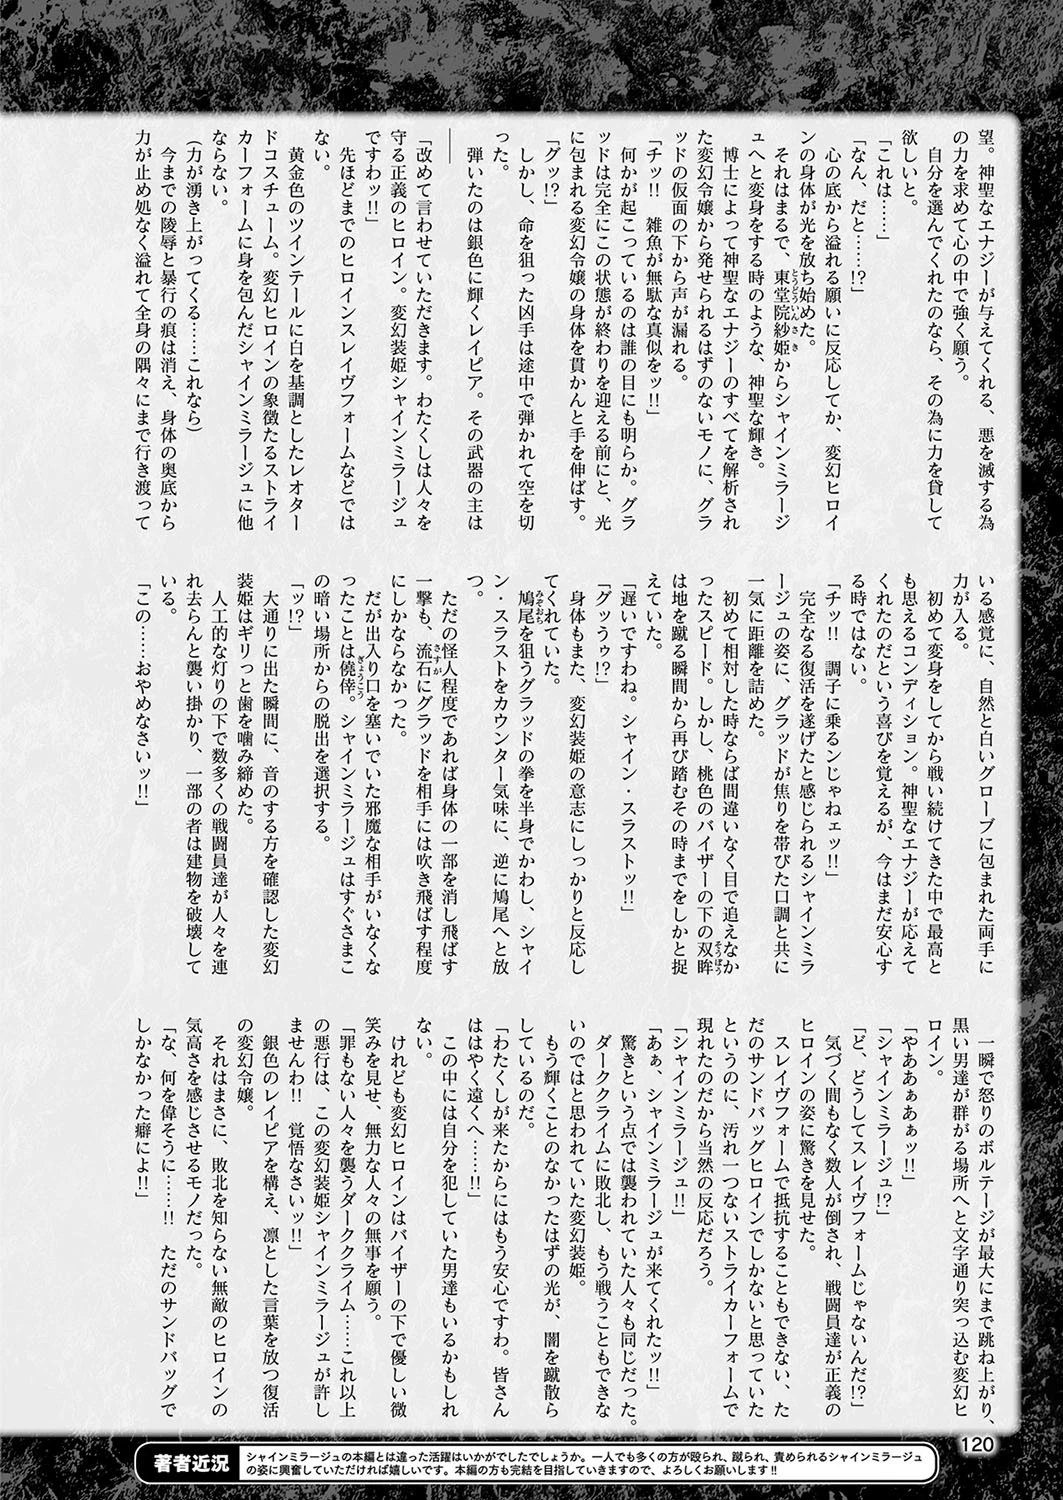 望。神聖なエナジーが与えてくれる、悪を滅する為
の力を求めて心の中で強く願う。
自分を選んでくれたのなら、その為に力を貸して
欲しいと。
「これは……」
「なん、だと……!?」
心の底から溢れる願いに反応してか、変幻ヒロイ
ンの身体が光を放ち始めた。
それはまるで、東堂院紗姫からシャインミラージ
ュへと変身をする時のような、神聖な輝き。
博士によって神聖なエナジーのすべてを解析され
た変幻令嬢から発せられるはずのないモノに、グラ
ッドの仮面の下から声が漏れる。
「チッ!!　雑魚が無駄な真似をッ!!」
何かが起こっているのは誰の目にも明らか。グラ
ッドは完全にこの状態が終わりを迎える前にと、光
に包まれる変幻令嬢の身体を貫かんと手を伸ばす。
「グッ!?」
しかし、命を狙った凶手は途中で弾かれて空を切
った。
弾いたのは銀色に輝くレイピア。その武器の主は
――
「改めて言わせていただきます。わたくしは人々を
守る正義のヒロイン。変幻装姫シャインミラージュ
ですわッ!!」
先ほどまでのヒロインスレイヴフォームなどでは
ない。
黄金色のツインテールに白を基調としたレオター
ドコスチューム。変幻ヒロインの象徴たるストライ
カーフォームに身を包んだシャインミラージュに他
ならない。
(力が湧き上がってくる……これなら)
今までの陵辱と暴行の痕は消え、身体の奥底から
力が止め処なく溢れて全身の隅々にまで行き渡って
いる感覚に、自然と白いグローブに包まれた両手に
力が入る。
初めて変身をしてから戦い続けてきた中で最高と
も思えるコンディション。神聖なエナジーが応えて
くれたのだという喜びを覚えるが、今はまだ安心す
る時ではない。
「チッ!!　調子に乗るンじゃねェッ!!」
完全なる復活を遂げたと感じられるシャインミラ
ージュの姿に、グラッドが焦りを帯びた口調と共に
一気に距離を詰めた。
初めて相対した時ならば間違いなく目で追えなか
ったスピード。しかし、桃色のバイザーの下の双眸
は地を蹴る瞬間から再び踏むその時までをしかと捉
えていた。
「遅いですわね。シャイン・スラストッ!!」
「グッうゥ!?」
身体もまた、変幻装姫の意志にしっかりと反応し
てくれていた。
鳩尾を狙うグラッドの拳を半身でかわし、シャイ
ン・スラストをカウンター気味に、逆に鳩尾へと放
つ。
ただの怪人程度であれば身体の一部を消し飛ばす
一撃も、流石にグラッドを相手には吹き飛ばす程度
にしかならなかった。
だが出入り口を塞いでいた邪魔な相手がいなくな
ったことは僥倖。シャインミラージュはすぐさまこ
の暗い場所からの脱出を選択する。
「ッ!?」
大通りに出た瞬間に、音のする方を確認した変幻
装姫はギリっと歯を噛み締めた。
人工的な灯りの下で数多くの戦闘員達が人々を連
れ去らんと襲い掛かり、一部の者は建物を破壊して
いる。
「この……おやめなさいッ!!」
一瞬で怒りのボルテージが最大にまで跳ね上がり、
黒い男達が群がる場所へと文字通り突っ込む変幻ヒ
ロイン。
「やあああぁぁッ!!」
「シャインミラージュ!?」
「ど、どうしてスレイヴフォームじゃないんだ!?」
気づく間もなく数人が倒され、戦闘員達が正義の
ヒロインの姿に驚きを見せた。
スレイヴフォームで抵抗することもできない、た
だのサンドバッグヒロインでしかないと思っていた
というのに、汚れ一つないストライカーフォームで
現れたのだから当然の反応だろう。
「シャインミラージュ!!」
「あぁ、シャインミラージュが来てくれたッ!!」
驚きという点では襲われていた人々も同じだった。
ダーククライムに敗北し、もう戦うこともできな
いのではと思われていた変幻装姫。
もう輝くことのなかったはずの光が、闇を蹴散ら
しているのだ。
「わたくしが来たからにはもう安心ですわ。皆さん
ははやく遠くへ……!!」
この中には自分を犯していた男達もいるかもしれ
ない。
けれども変幻ヒロインはバイザーの下で優しい微
笑みを見せ、無力な人々の無事を願う。
「罪もない人々を襲うダーククライム……これ以上
の悪行は、この変幻装姫シャインミラージュが許し
ませんわ!!　覚悟なさいッ!!」
銀色のレイピアを構え、凛とした言葉を放つ復活
の変幻令嬢。
それはまさに、敗北を知らない無敵のヒロインの
気高さを感じさせるモノだった。
「な、何を偉そうに……!!　ただのサンドバッグで
しかなかった癖によ!!」
120
著者近況
シャインミラージュの本編とは違った活躍はいかがでしたでしょうか。一人でも多くの方が殴られ、蹴られ、責められるシャインミラージュ
の姿に興奮していただければ嬉しいです。本編の方も完結を目指していきますので、よろしくお願いします!!